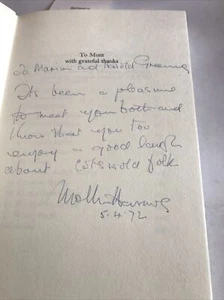 To Mum
with grateful thanks
To Marian and Harold Greening
It's been a pleasure
to meet you both and
know that you too
enjoy a good laugh
about Cotswold folk
Mollie Harris
5.4.72